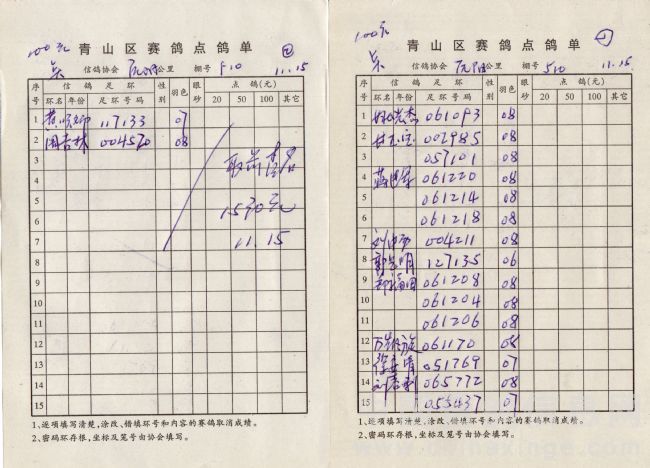 100元
青山区赛鸽点鸽单
②
信鸽协会 公里 棚号 510 11.15
序号 信鸽足环 性别 羽色 眼砂 点鸽(元)
环名 年份 足环号码 20 50 100 其它
1 117133 07
2 周吉林 004520 08
3 取前
4
5 1500元
6
7 11.15
8
9
10
11
12
13
14
15
1、逐项填写清楚,涂改、错填环号和内容的赛鸽取消成绩。
2、密码环存根,坐标及笼号由协会填写。
青山区赛鸽点鸽单
①
信鸽协会 公里 棚号 510 11.15
序号 信鸽足环 性别 羽色 眼砂 点鸽(元)
环名 年份 足环号码 20 50 100 其它
1 061093 08
2 002985 08
3 057101 08
4 061220 08
5 061214 08
6 061218 08
7 004211 08
8 127135 06
9 061208 08
10 061204 08
11 061206 08
12 061170 08
13 051769 07
14 065772 08
15 055437 07
1、逐项填写清楚,涂改、错填环号和内容的赛鸽取消成绩。
2、密码环存根,坐标及笼号由协会填写。